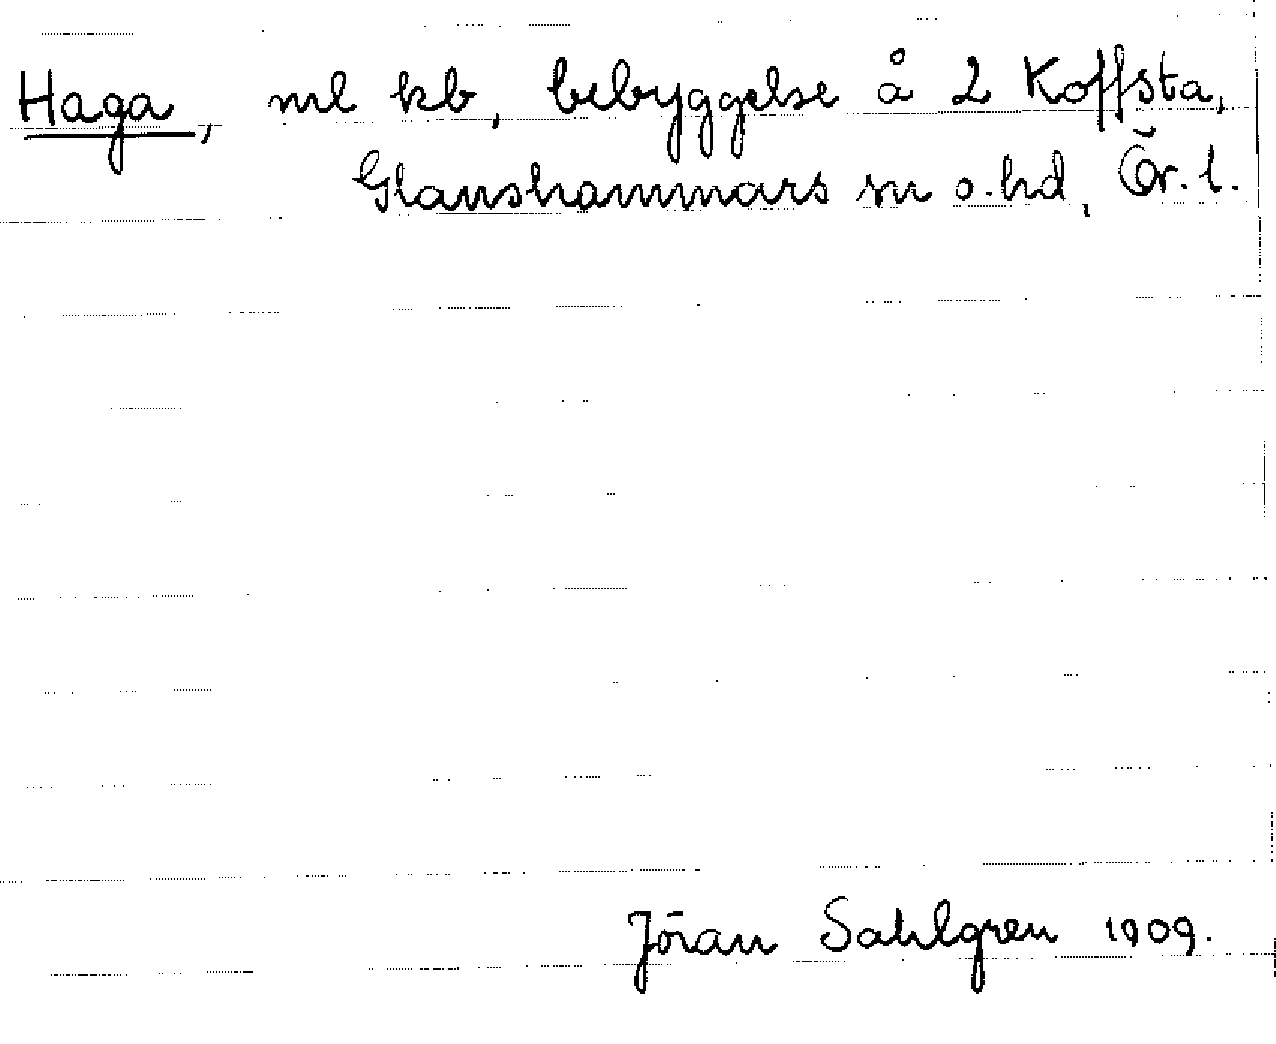 Haga, ml kb, bebyggelse å 2 Koffsta,
Glanshammars sn o. hd, Ör. l.
Jöran Sahlgren 1909.